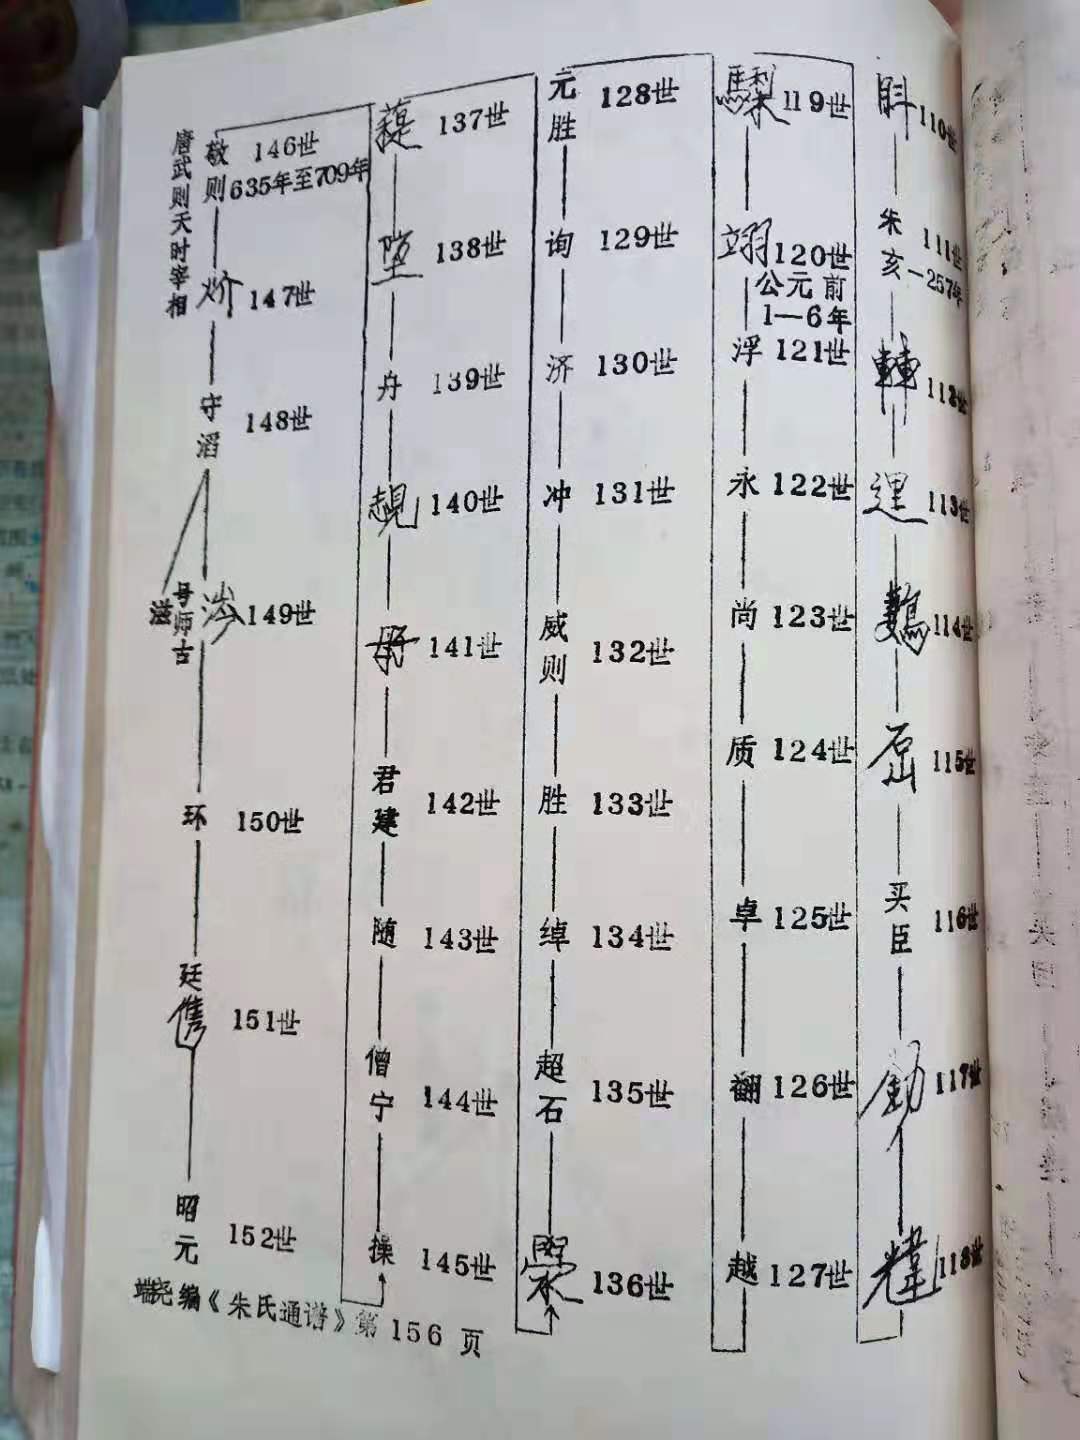 110世
朱亥 111世
-257年
112世
113世
114世
115世
买臣 116世
117世
118世
119世
翊 120世
公元前
1—6年
浮 121世
永 122世
尚 123世
质 124世
卓 125世
翻 126世
越 127世
元胜 128世
询 129世
济 130世
冲 131世
威则 132世
胜 133世
绰 134世
超石 135世
136世
137世
138世
舟 139世
140世
141世
君建 142世
随 143世
僧宁 144世
操 145世
敬则 146世
635年至709年
唐武则天时宰相
147世
守滔 148世
149世
号师古
滋
环 150世
廷儁 151世
昭元 152世
端尧编《朱氏通谱》第 156 页